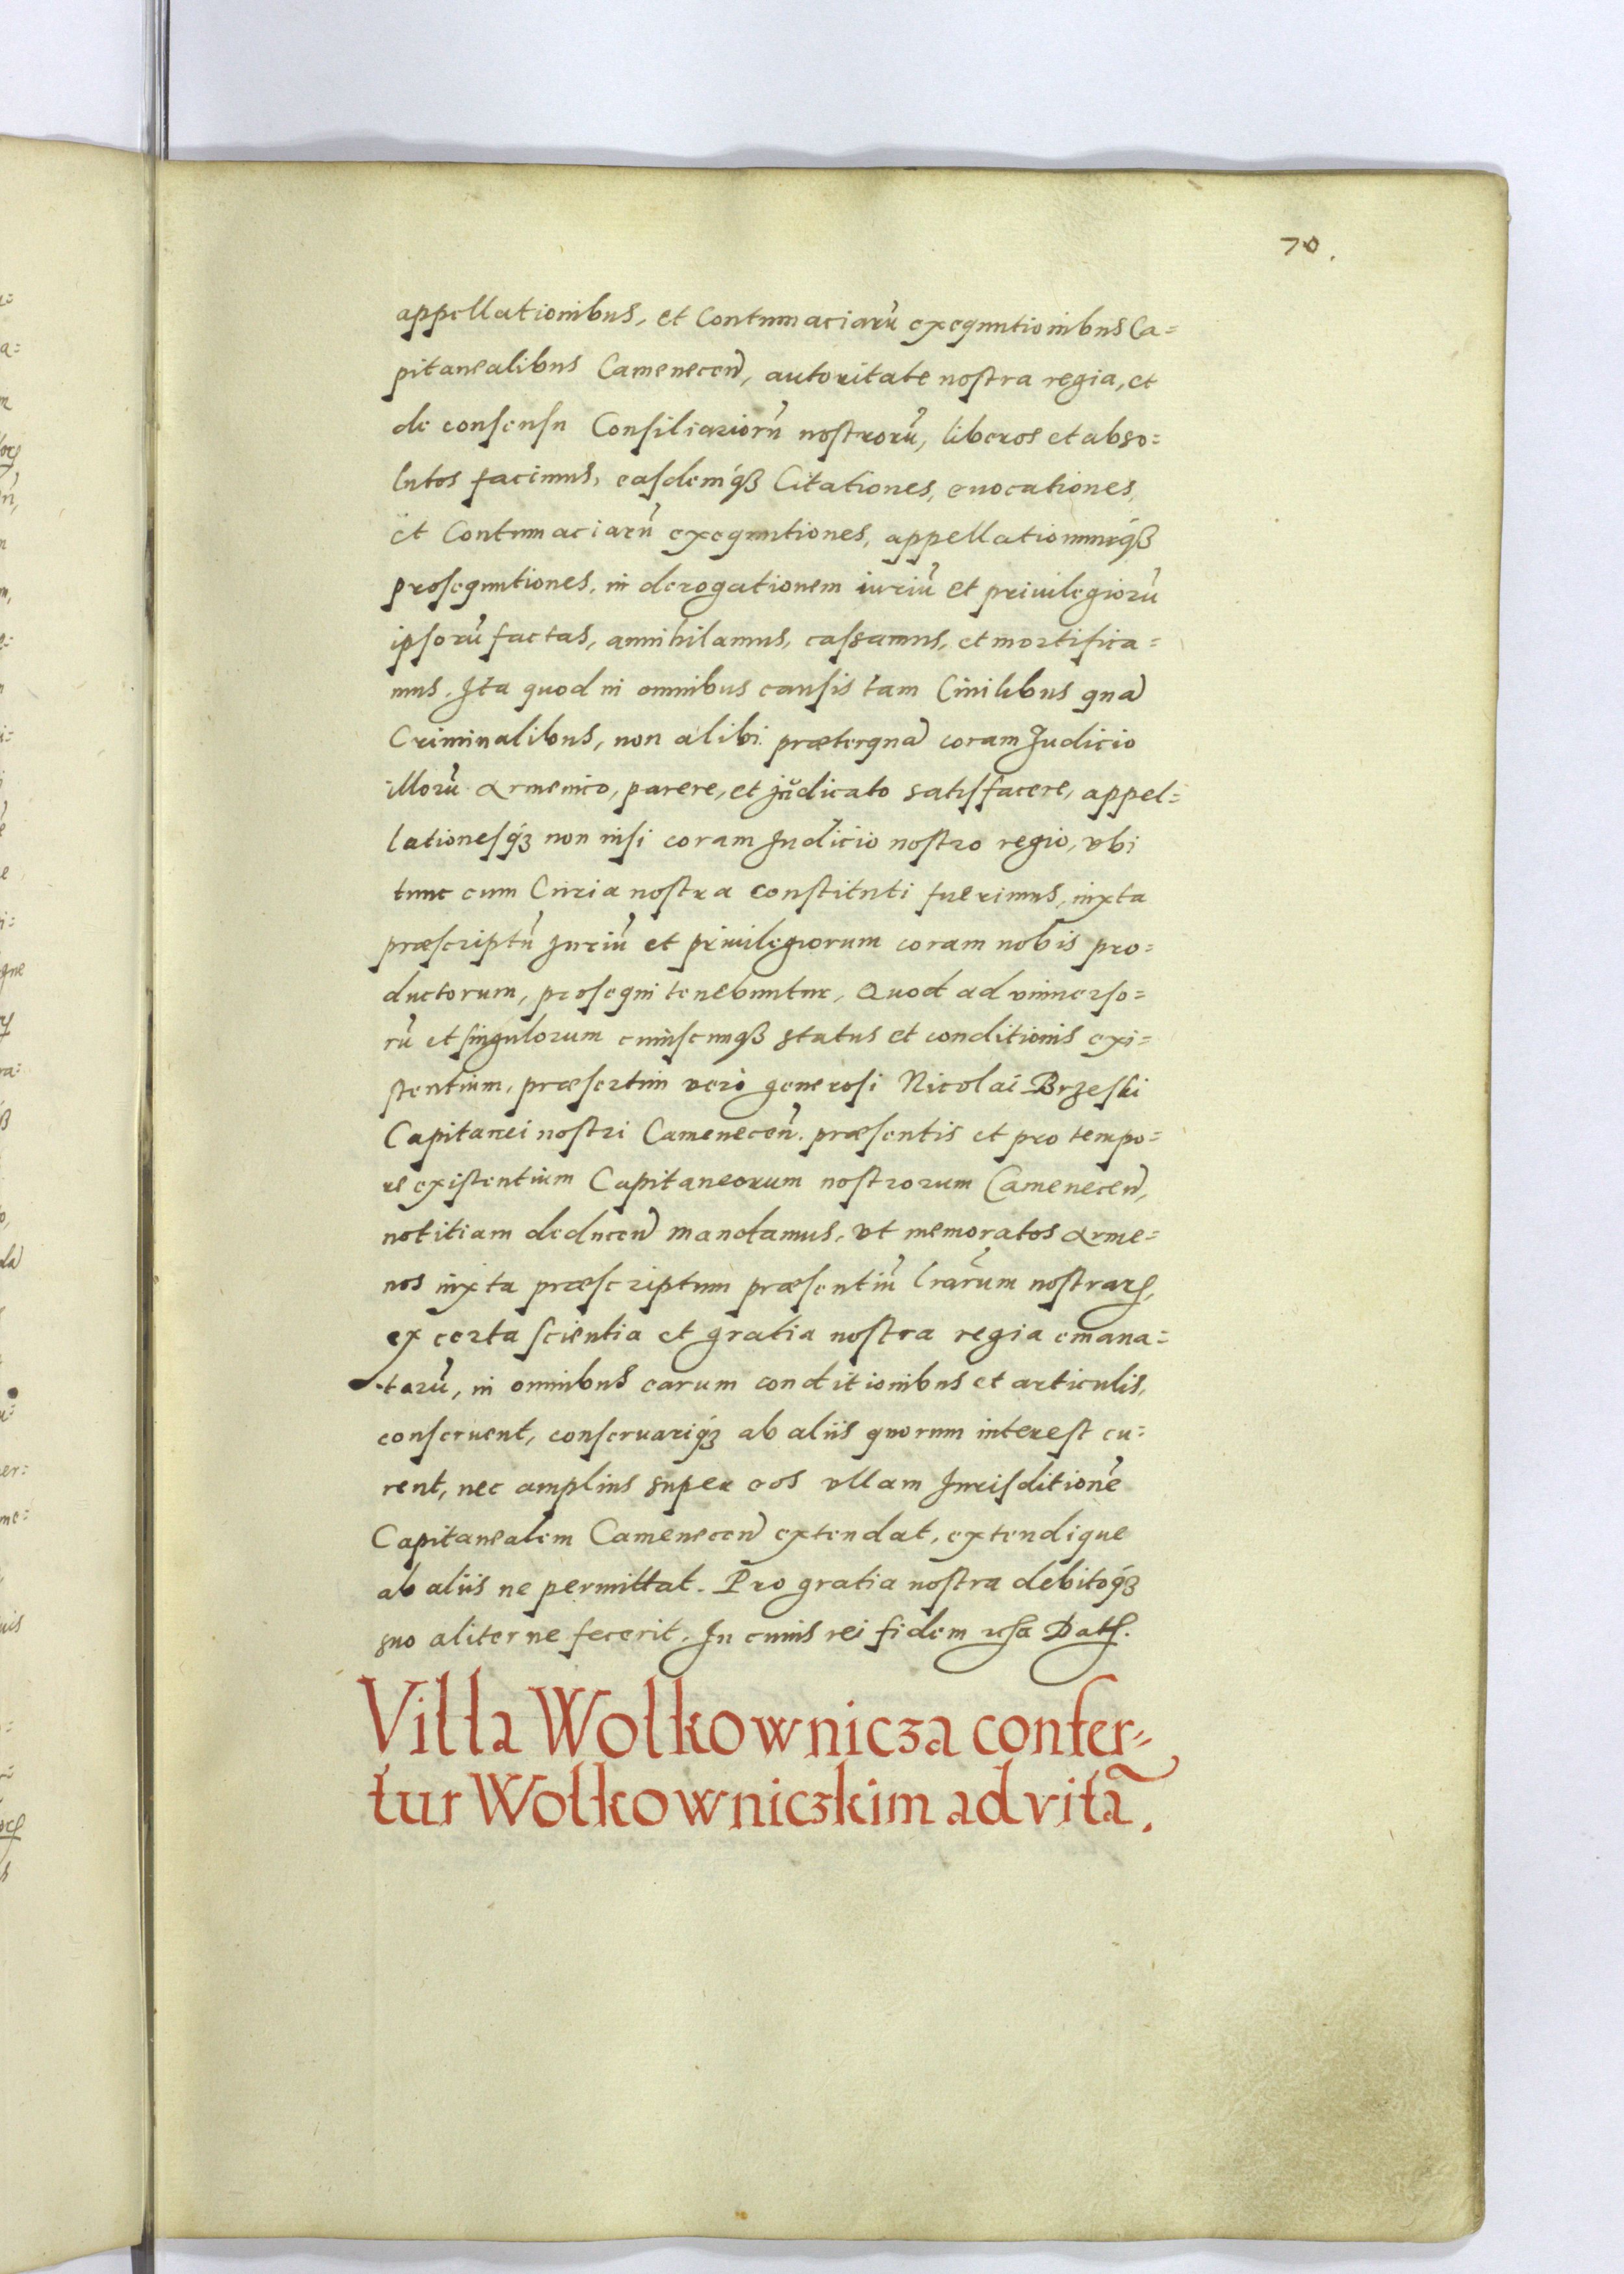 70.
appellationibus, et Contumaciarū exequutionibus Ca=
pitanealibus Camenecen̄, autoritate nostra regia, et
de consensu Consiliariorū nostrorū, liberos et abso=
lutos facimus, easdemq́ꝫ Citationes, euocationes,
et Contumaciarū exequutiones, appellationumq́ꝫ
prosequutiones, in derogationem iuriū et priuilegiorū
ipsorū factas, annihilamus, cassamus, et mortifica=
mus. Ita quod in omnibus causis tam Ciuilibus quā
Criminalibus, non alibi præterquā coram Judicio
illorū Armenico, parere, et judicato satisfacere, appel=
lationesq́ꝫ non nisi coram Judicio nostro regio, vbi
tunc cum Curia nostra constituti fuerimus, iuxta
præscriptū Juriū et priuilegiorum coram nobis pro=
ductorum, prosequi tenebuntur, Quod ad vniuerso=
rū et singulorum cuiuscunqꝫ status et conditionis exi=
stentium, præsertim verò generosi Nicolai Brzeski
Capitanei nostri Camenecen̄. præsentis et pro tempo=
re existentium Capitaneorum nostrorum Camenecen̄,
notitiam deducen̄ mandamus, vt memoratos Arme=
nos iuxta præscriptum præsentiū lrārum nostrarꝝ,
ex certa scientia et gratia nostra regia emana=
tarū, in omnibus earum conditionibus et articulis,
conseruent, conseruariq́ꝫ ab aliis quorum interest cu=
rent, nec amplius super eos vllam Jurisditionē
Capitanealem Camenecen̄ extendat, extendique
ab aliis ne permittat. Pro gratia nostra debitoq́ꝫ
suo aliter ne fecerit. In cuius rei fidem Datꝭ.
Villa Wolkownicza confer=
tur Wolkowniczkim ad vitã.